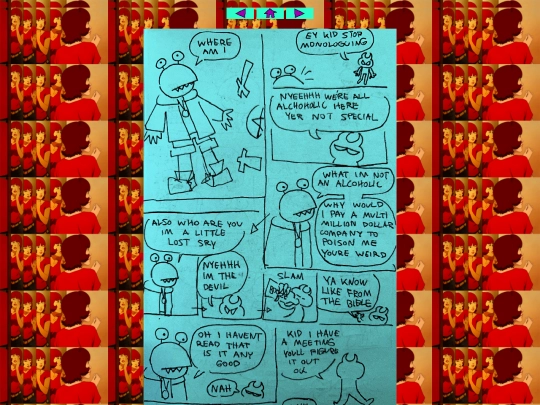 WHERE
AM I
EY KID STOP
MONOLOGUING
NYEEHHH WE'RE ALL
ALCHOHOLIC HERE
YER NOT SPECIAL
WHAT IM NOT
AN ALCOHOLIC
WHY WOULD
I PAY A MULTI
MILLION DOLLAR
COMPANY TO
POISON ME
YOURE WEIRD
ALSO WHO ARE YOU
IM A LITTLE
LOST SRY
NYEHHH
IM THE
DEVIL
SLAM
YA KNOW
LIKE FROM
THE BIBLE
OH I HAVENT
READ THAT
IS IT ANY
GOOD
NAH
KID I HAVE
A MEETING
YOULL FIGURE
IT OUT
OK